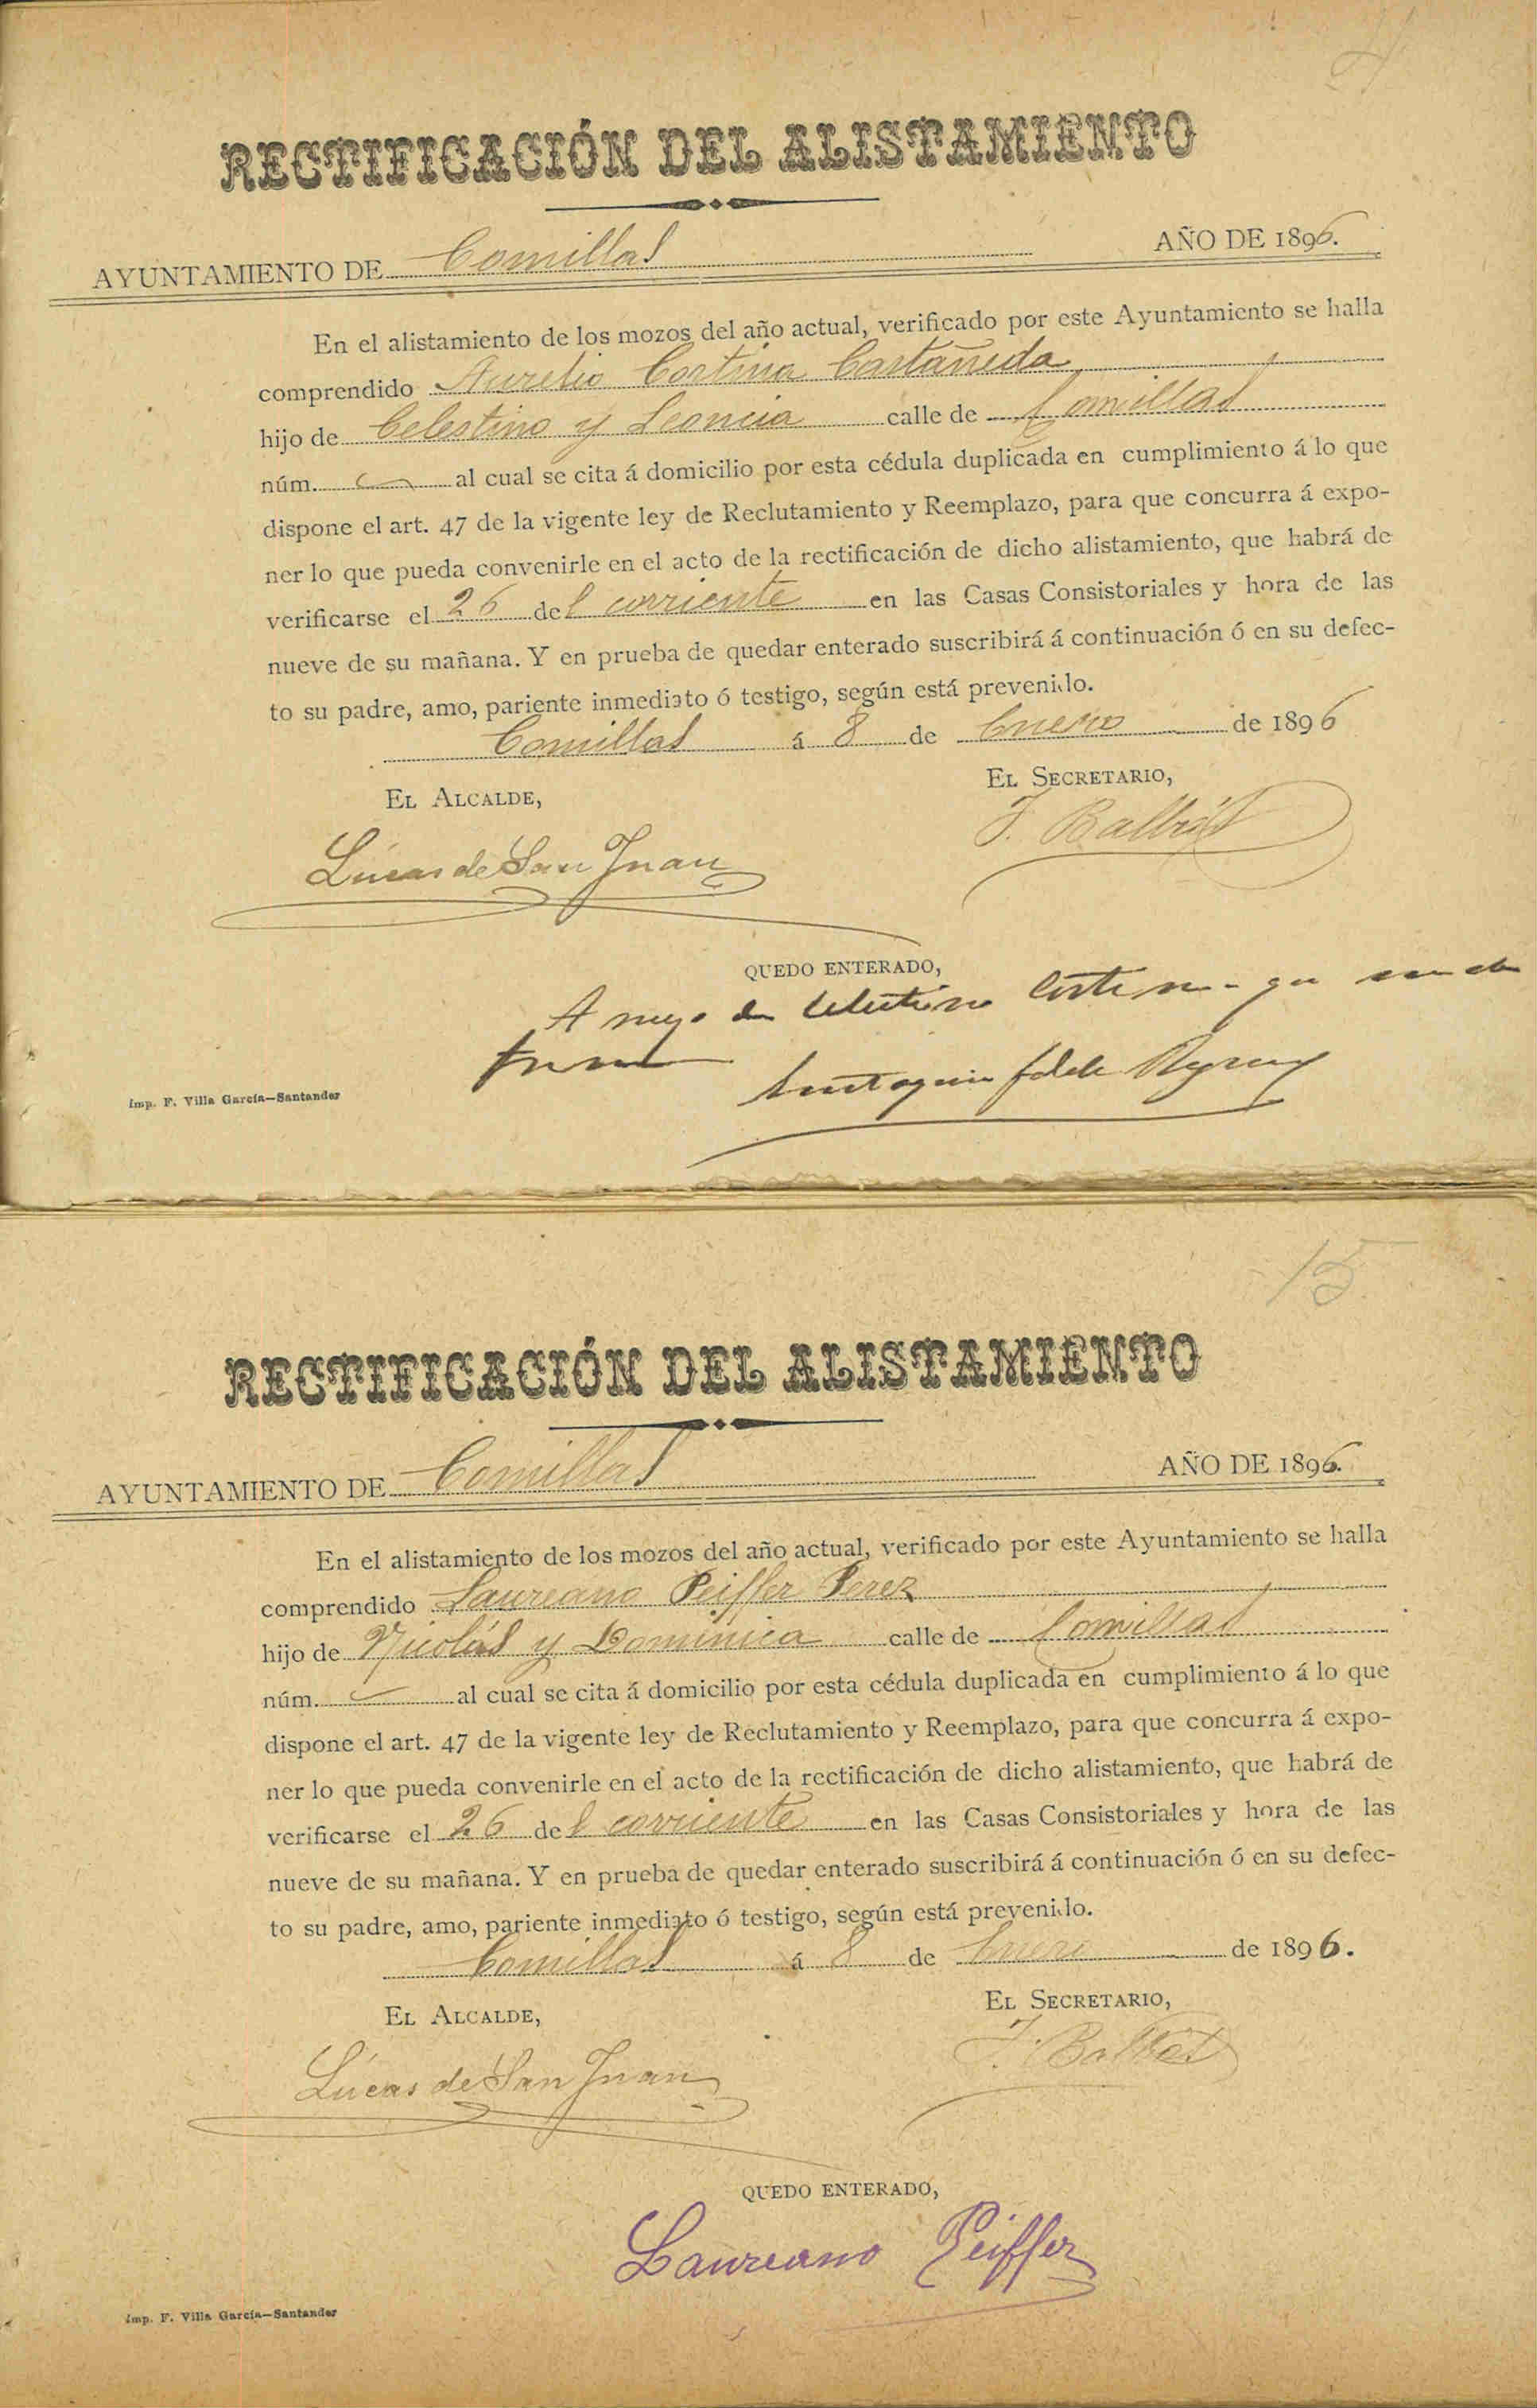 RECTIFICACIÓN DEL ALISTAMIENTO
AYUNTAMIENTO DE Comillas AÑO DE 1896.
En el alistamiento de los mozos del año actual, verificado por este Ayuntamiento se halla
comprendido Aurelio Cortina Castañeda
hijo de Celestino y Leoncia calle de Comillas
núm. al cual se cita á domicilio por esta cédula duplicada en cumplimiento á lo que
dispone el art. 47 de la vigente ley de Reclutamiento y Reemplazo, para que concurra á expo-
ner lo que pueda convenirle en el acto de la rectificación de dicho alistamiento, que habrá de
verificarse el 26 del corriente en las Casas Consistoriales y hora de las
nueve de su mañana. Y en prueba de quedar enterado suscribirá á continuación ó en su defec-
to su padre, amo, pariente inmediato ó testigo, según está prevenido.
Comillas á 8 de Enero de 1896
EL ALCALDE, EL SECRETARIO,
Lúcas de San Juan J. Balbás
QUEDO ENTERADO,
A ruego de Celestino Cortina que no sabe
firmar
Imp. F. Villa García—Santander
15
RECTIFICACIÓN DEL ALISTAMIENTO
AYUNTAMIENTO DE Comillas AÑO DE 1896.
En el alistamiento de los mozos del año actual, verificado por este Ayuntamiento se halla
comprendido Laureano Peiffer Perez
hijo de Nicolás y Dominica calle de Comillas
núm. al cual se cita á domicilio por esta cédula duplicada en cumplimiento á lo que
dispone el art. 47 de la vigente ley de Reclutamiento y Reemplazo, para que concurra á expo-
ner lo que pueda convenirle en el acto de la rectificación de dicho alistamiento, que habrá de
verificarse el 26 del corriente en las Casas Consistoriales y hora de las
nueve de su mañana. Y en prueba de quedar enterado suscribirá á continuación ó en su defec-
to su padre, amo, pariente inmediato ó testigo, según está prevenido.
Comillas á 8 de Enero de 1896.
EL ALCALDE, EL SECRETARIO,
Lúcas de San Juan J. Balbás
QUEDO ENTERADO,
Laureano Peiffer
Imp. F. Villa García—Santander